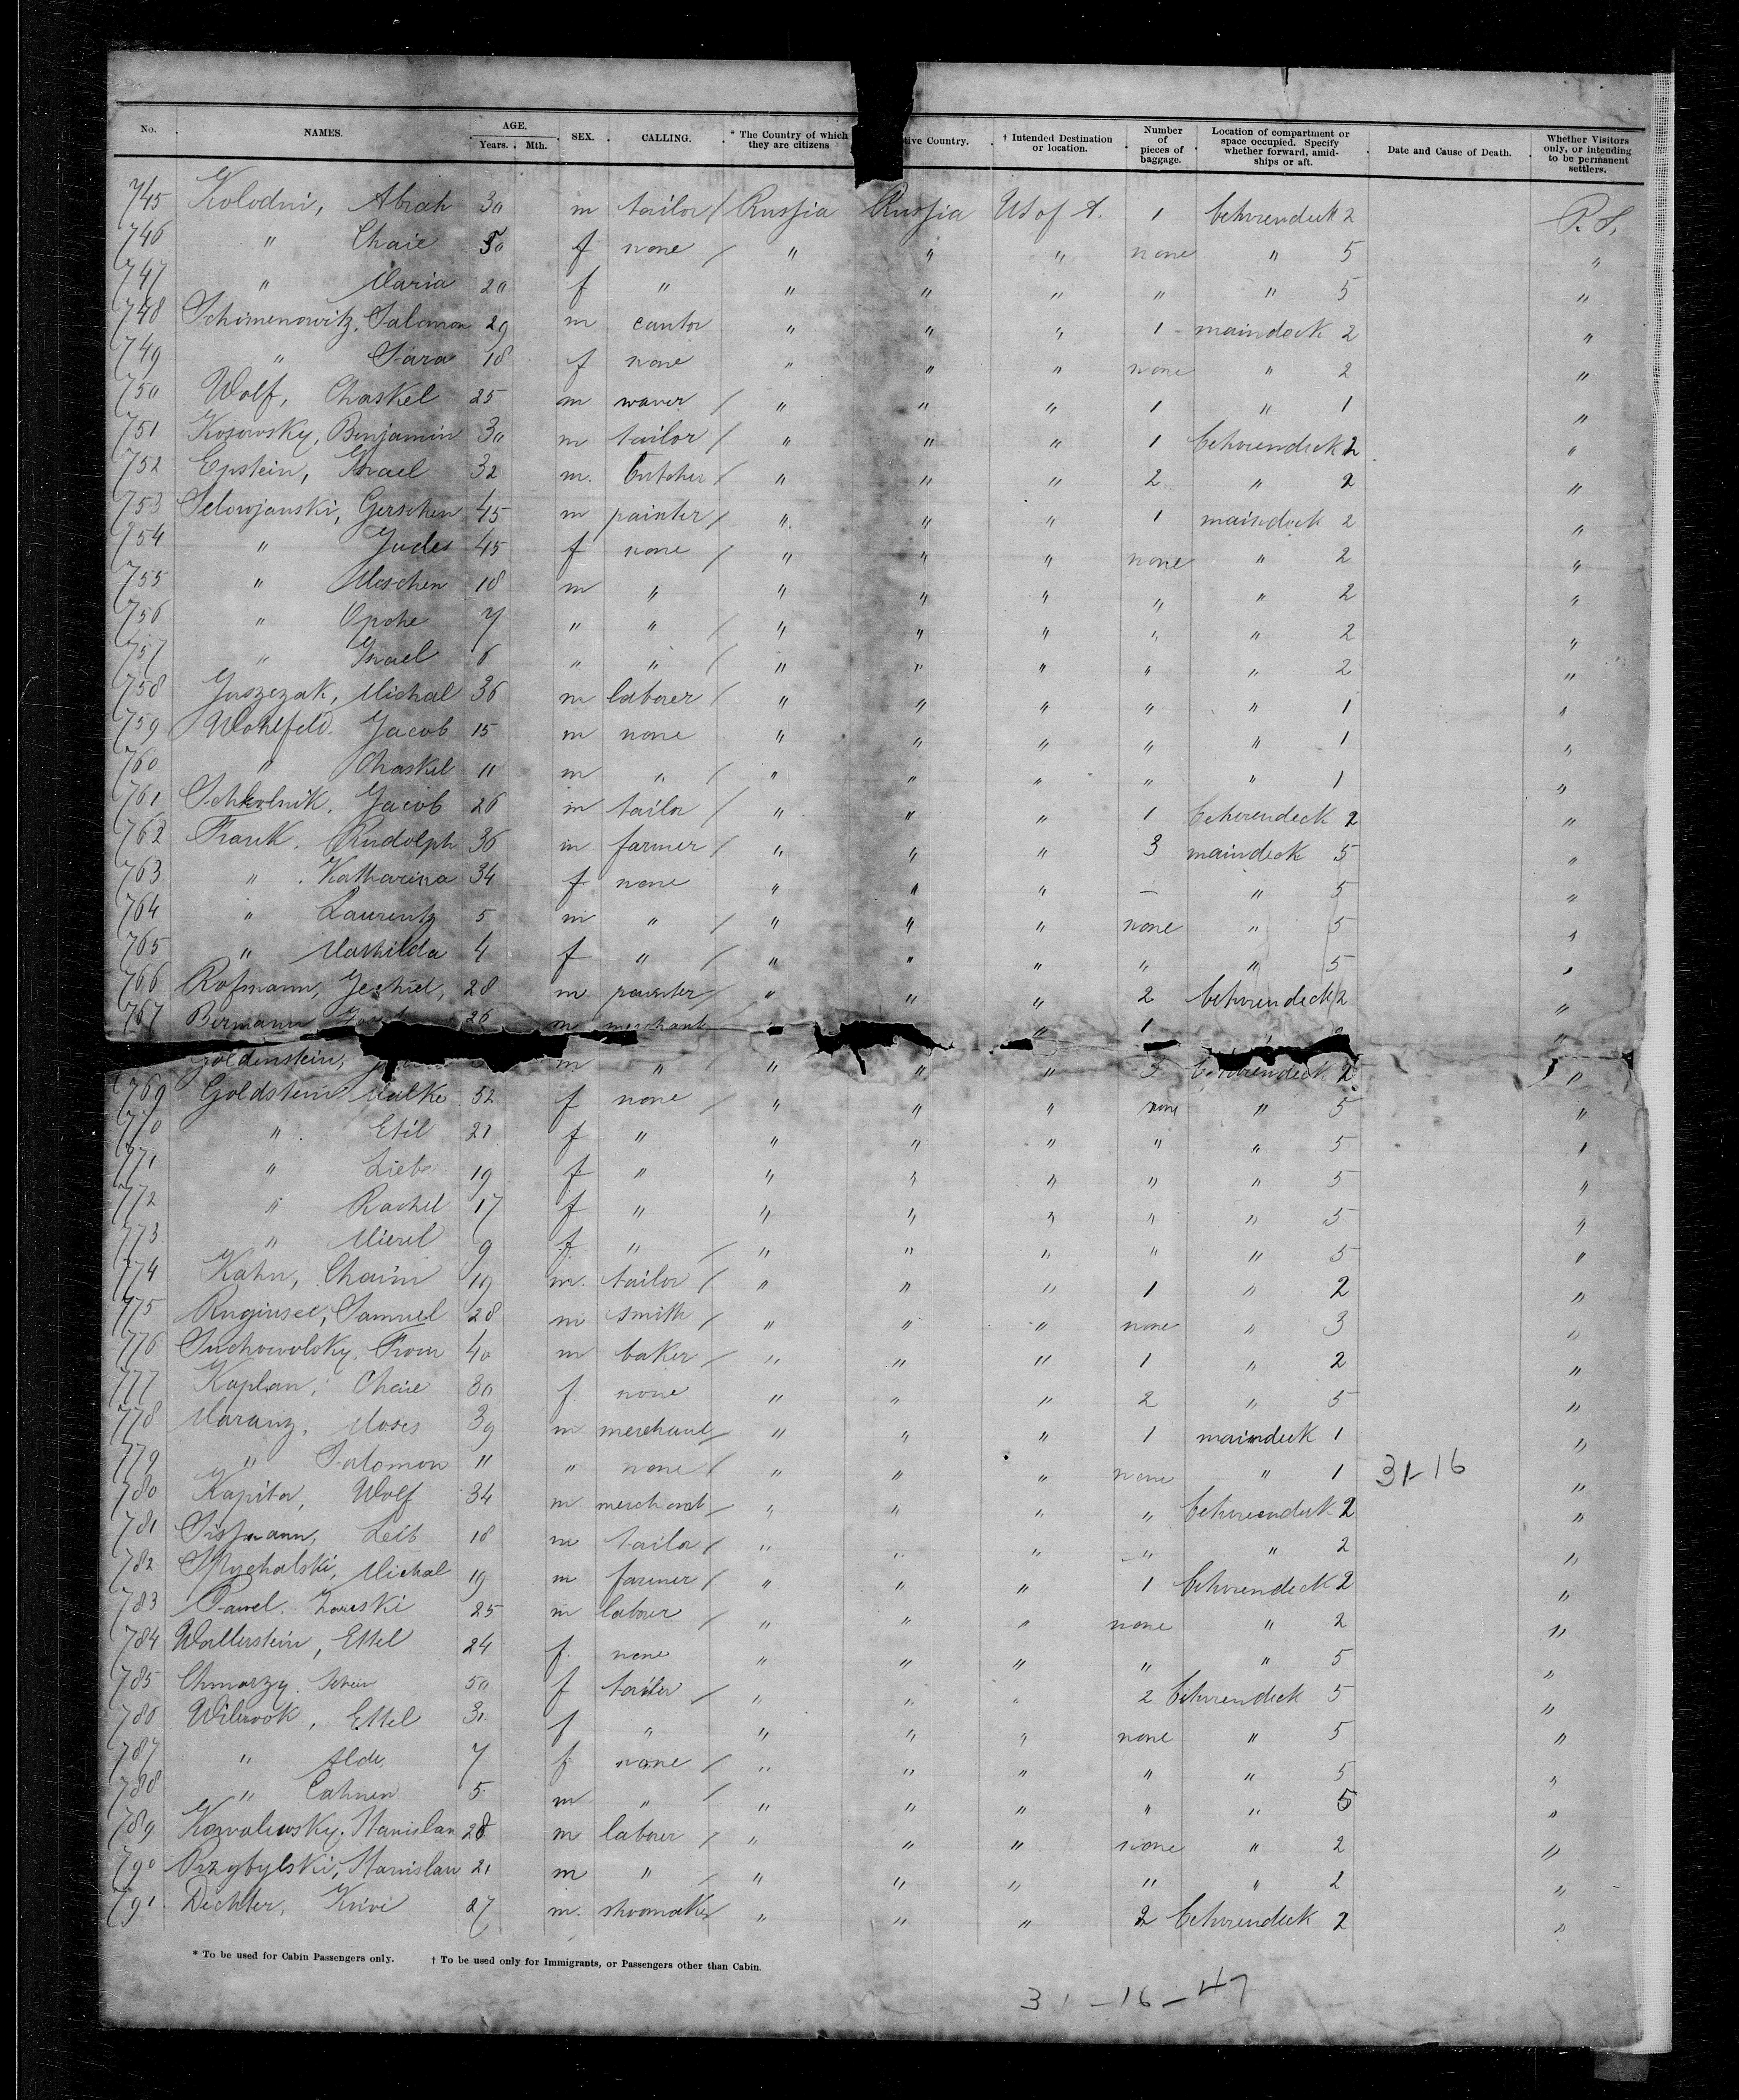 No. NAMES. AGE. Years. Mth. SEX. CALLING. * The Country of which they are citizens tive Country. † Intended Destination or location. Number of pieces of baggage. Location of compartment or space occupied. Specify whether forward, amidships or aft. Date and Cause of Death. Whether Visitors only, or intending to be permanent settlers.
745 Kolodni, Abrah 30 m tailor / Russia Russia US of A. 1 betweendeck 2 P. S.
746 " Chaie 50 f none / " " " none " 5 "
747 " Maria 20 f " " " " " " 5 "
748 Schimenowitz, Salomon 29 m cantor " " " 1 maindeck 2 "
749 " Sara 18 f none " " " none " 2 "
750 Wolf, Chaskel 25 m waver / " " " 1 " 1 "
751 Kosowsky, Benjamin 30 m tailor / " " " 1 betweendeck 2 "
752 Epstein, Israel 32 m. butcher / " " " 2 " 2 "
753 Selowjanski, Gerschen 45 m painter / " " " 1 maindeck 2 "
754 " Judes 45 f none / " " " none " 2 "
755 " Moschen 18 m " " " " " " 2 "
756 " 7 " " / " " " " " 2 "
757 " Israel 6 " " / " " " " " 2 "
758 Juszczak, Michal 36 m laborer / " " " " " 1 "
759 Wohlfeld. Jacob 15 m none " " " " " 1 "
760 " Chaskel 11 m " / " " " " " 1 "
761 Schkolnik, Jacob 26 m tailor / " " " 1 betweendeck 2 "
762 Frank, Rudolph 36 m farmer / " " " 3 maindeck 5 "
763 " Katharina 34 f none " " " — " 5 "
764 " Laurentz 5 m " / " " " none " 5 "
765 " Mathilda 4 f " / " " " " " 5 "
766 Rofmann, Jechiel, 28 m painter / " " " 2 betweendeck 2 "
767 Bermann 26 m merchant " " 1 "
Goldenstein, m " " " " betweendeck 2 "
769 Goldstein Malke 52 f none / " " " none " 5 "
770 " Etil 21 f " " " " " " 5 "
771 " Liebe 19 f " " " " " " 5 "
772 " Rachel 17 f " " " " " " 5 "
773 " Mierel 9 f " / " " " " " 5 "
774 Kahn, Chaim 19 m. tailor / " " " 1 " 2 "
775 Samuel 28 m smith / " " " none " 3 "
776 Suchowolsky, From 40 m baker / " " " 1 " 2 "
777 Kaplan, Chaie 30 f none " " " 2 " 5 "
778 Maranz, Moses 39 m merchant / " " " 1 maindeck 1 "
779 " Salomon 11 " none / " " " none " 1 31-16 "
780 Kapitor, Wolf 34 m merchant / " " " " betweendeck 2 "
781 Leib 18 m tailor / " " " " " 2 "
782 Michal 19 m farmer / " " " 1 betweendeck 2 "
783 Pawel. 25 m laborer / " " " none " 2 "
784 Wallerstein, Ettel 24 f. none " " " " " 5 "
785 Chmarzy. 50 f tailer / " " " 2 betweendeck 5 "
786 Wilwook, Ettel 31 f " " " " none " 5 "
787 " Alde, 7 f none / " " " " " 5 "
788 " 5 m " / " " " " " 5 "
789 Kowalewsky, Stanislan 28 m laborer / " " " none " 2 "
790 Przybylski, Stanislaw 21 m " / " " " " " 2 "
791 Dechter, Kiwi 27 m. shoemaker " " " 2 betweendeck 2 "
* To be used for Cabin Passengers only. † To be used only for Immigrants, or Passengers other than Cabin.
31-16-47